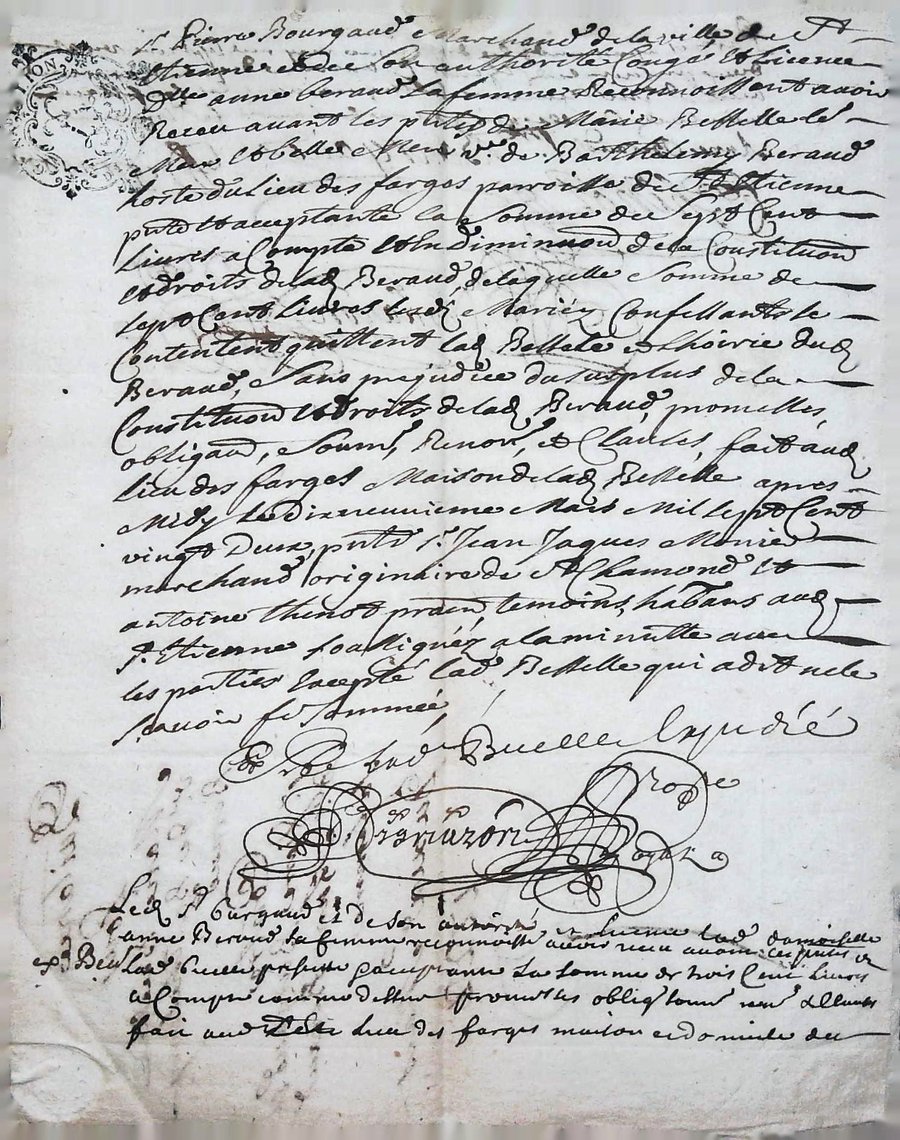 LYON
Sr. Pierre Bourgaud Marchand de la ville de St
Etienne et de son authorité Congé et licence
Dlle anne beraud sa femme Reconnoissent avoir
Receu avant les pntes de Marie Besselle
Mere et belle Mere ve. de Barthelemy Beraud
hoste du Lieu des farges parroisse de St Etienne
pnte et acceptante la Somme de Sept Cent
Livres a Compte et En diminuon de la Constitution
et droits de lad Beraud, de laquelle Somme de
sept Cent Livres lesd Mariéz Confessants se
Contentent quittent lad Bessele et Lhoirie dud
Beraud, Sans prejudice du surplus de la
Constitution et droits de lad Beraud, promesses,
obligaõn, Soumn, Renon, et Clauses, fait aud
Lieu des farges Maison de lad Bessele apres
Midy Le Dixneuvieme Mars Mil Sept Cent
vingt Deux, pnts Sr. Jean Jaques Monier
marchand originaire de St Chamond et
antoine thenot pratn, temoins, habans aud
St. Etienne soussignéz a la minutte avec
les parties Excepté lad Bessele qui a dit ne le
Scavoir fe Sommée
Exped lad Buelle Expedié
Led Sr burgaud et de son autorité et licence lad damoiselle
anne Beraud sa femme reconnoisse avoir receu avant ces pntes de
Lad Buelle presente Eacceptante La somme de trois Cent Livres
a Compte comme dessus promesses obligõns
fait aud lieu des farges maison et domicile de